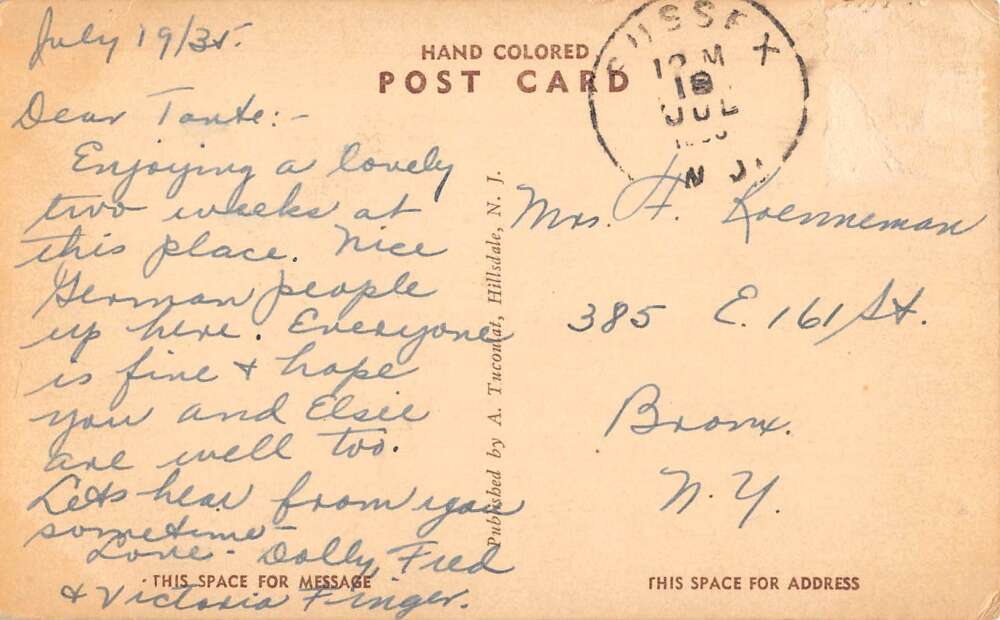 July 19/35.
HAND COLORED
POST CARD
SUSSEX
JUL
N.J.
Dear Tante:-
Enjoying a lovely
two weeks at
this place. Nice
German people
up here. Everyone
is fine + hope
you and Elsie
are well too.
Lets hear from you
sometime -
Love - Dolly, Fred
+ Victoria Finger.
Published by A. Tucoulat, Hillsdale, N. J.
Mrs. F. Koenneman
385 E. 161 St.
Bronx.
N.Y.
THIS SPACE FOR MESSAGE
THIS SPACE FOR ADDRESS